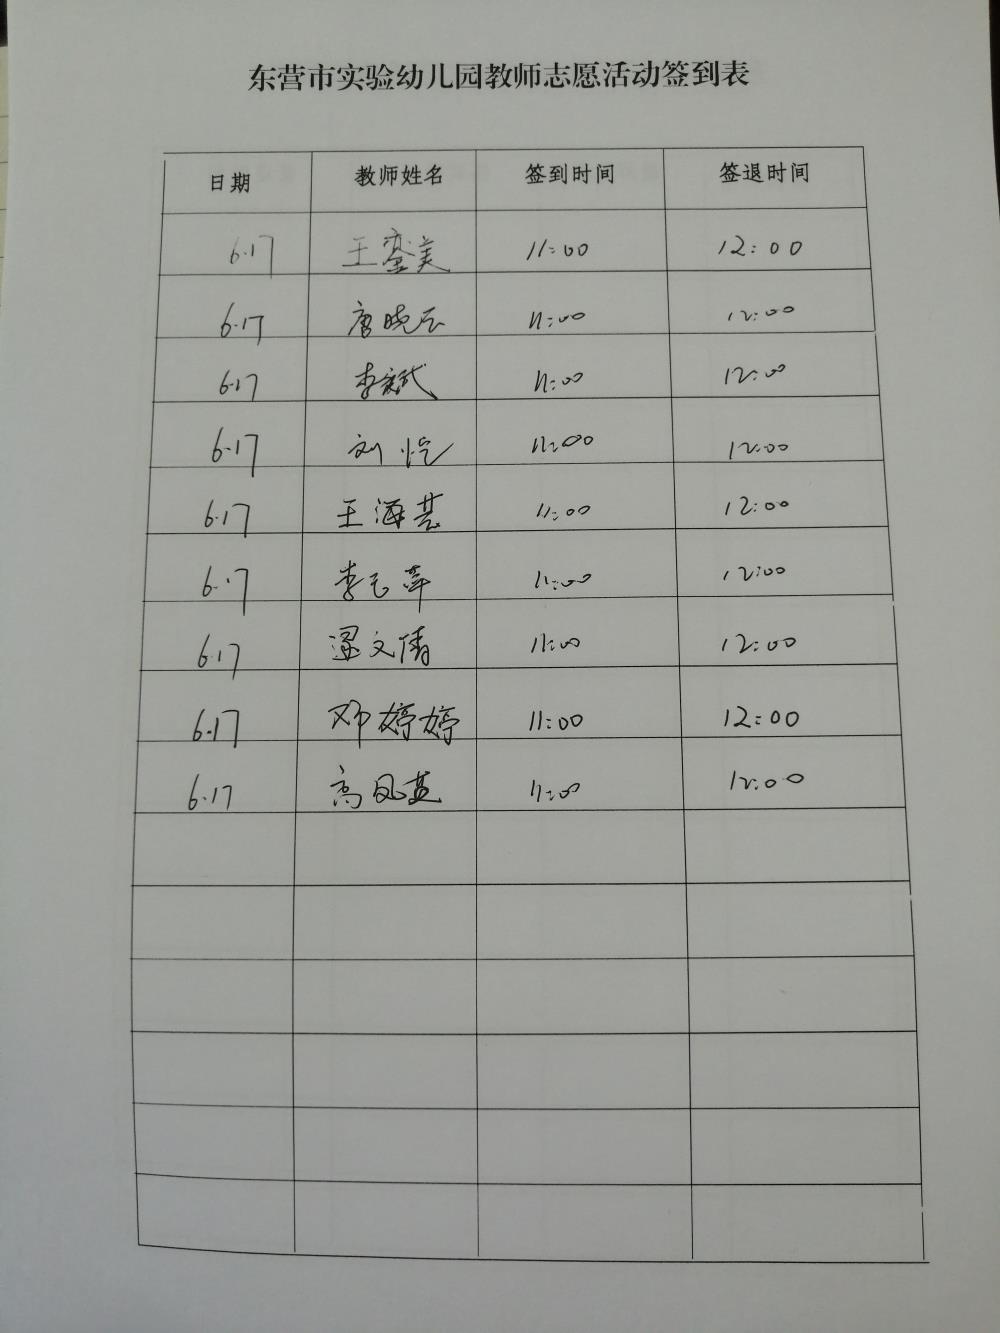 东营市实验幼儿园教师志愿活动签到表
日期 教师姓名 签到时间 签退时间
6.17 王銮美 11:00 12:00
6.17 唐晓石 11:00 12:00
6.17 李斌 11:00 12:00
6.17 刘 11:00 12:00
6.17 王海芸 11:00 12:00
6.17 李元萍 11:00 12:00
6.17 梁文倩 11:00 12:00
6.17 邓婷婷 11:00 12:00
6.17 高凤英 11:00 12:00